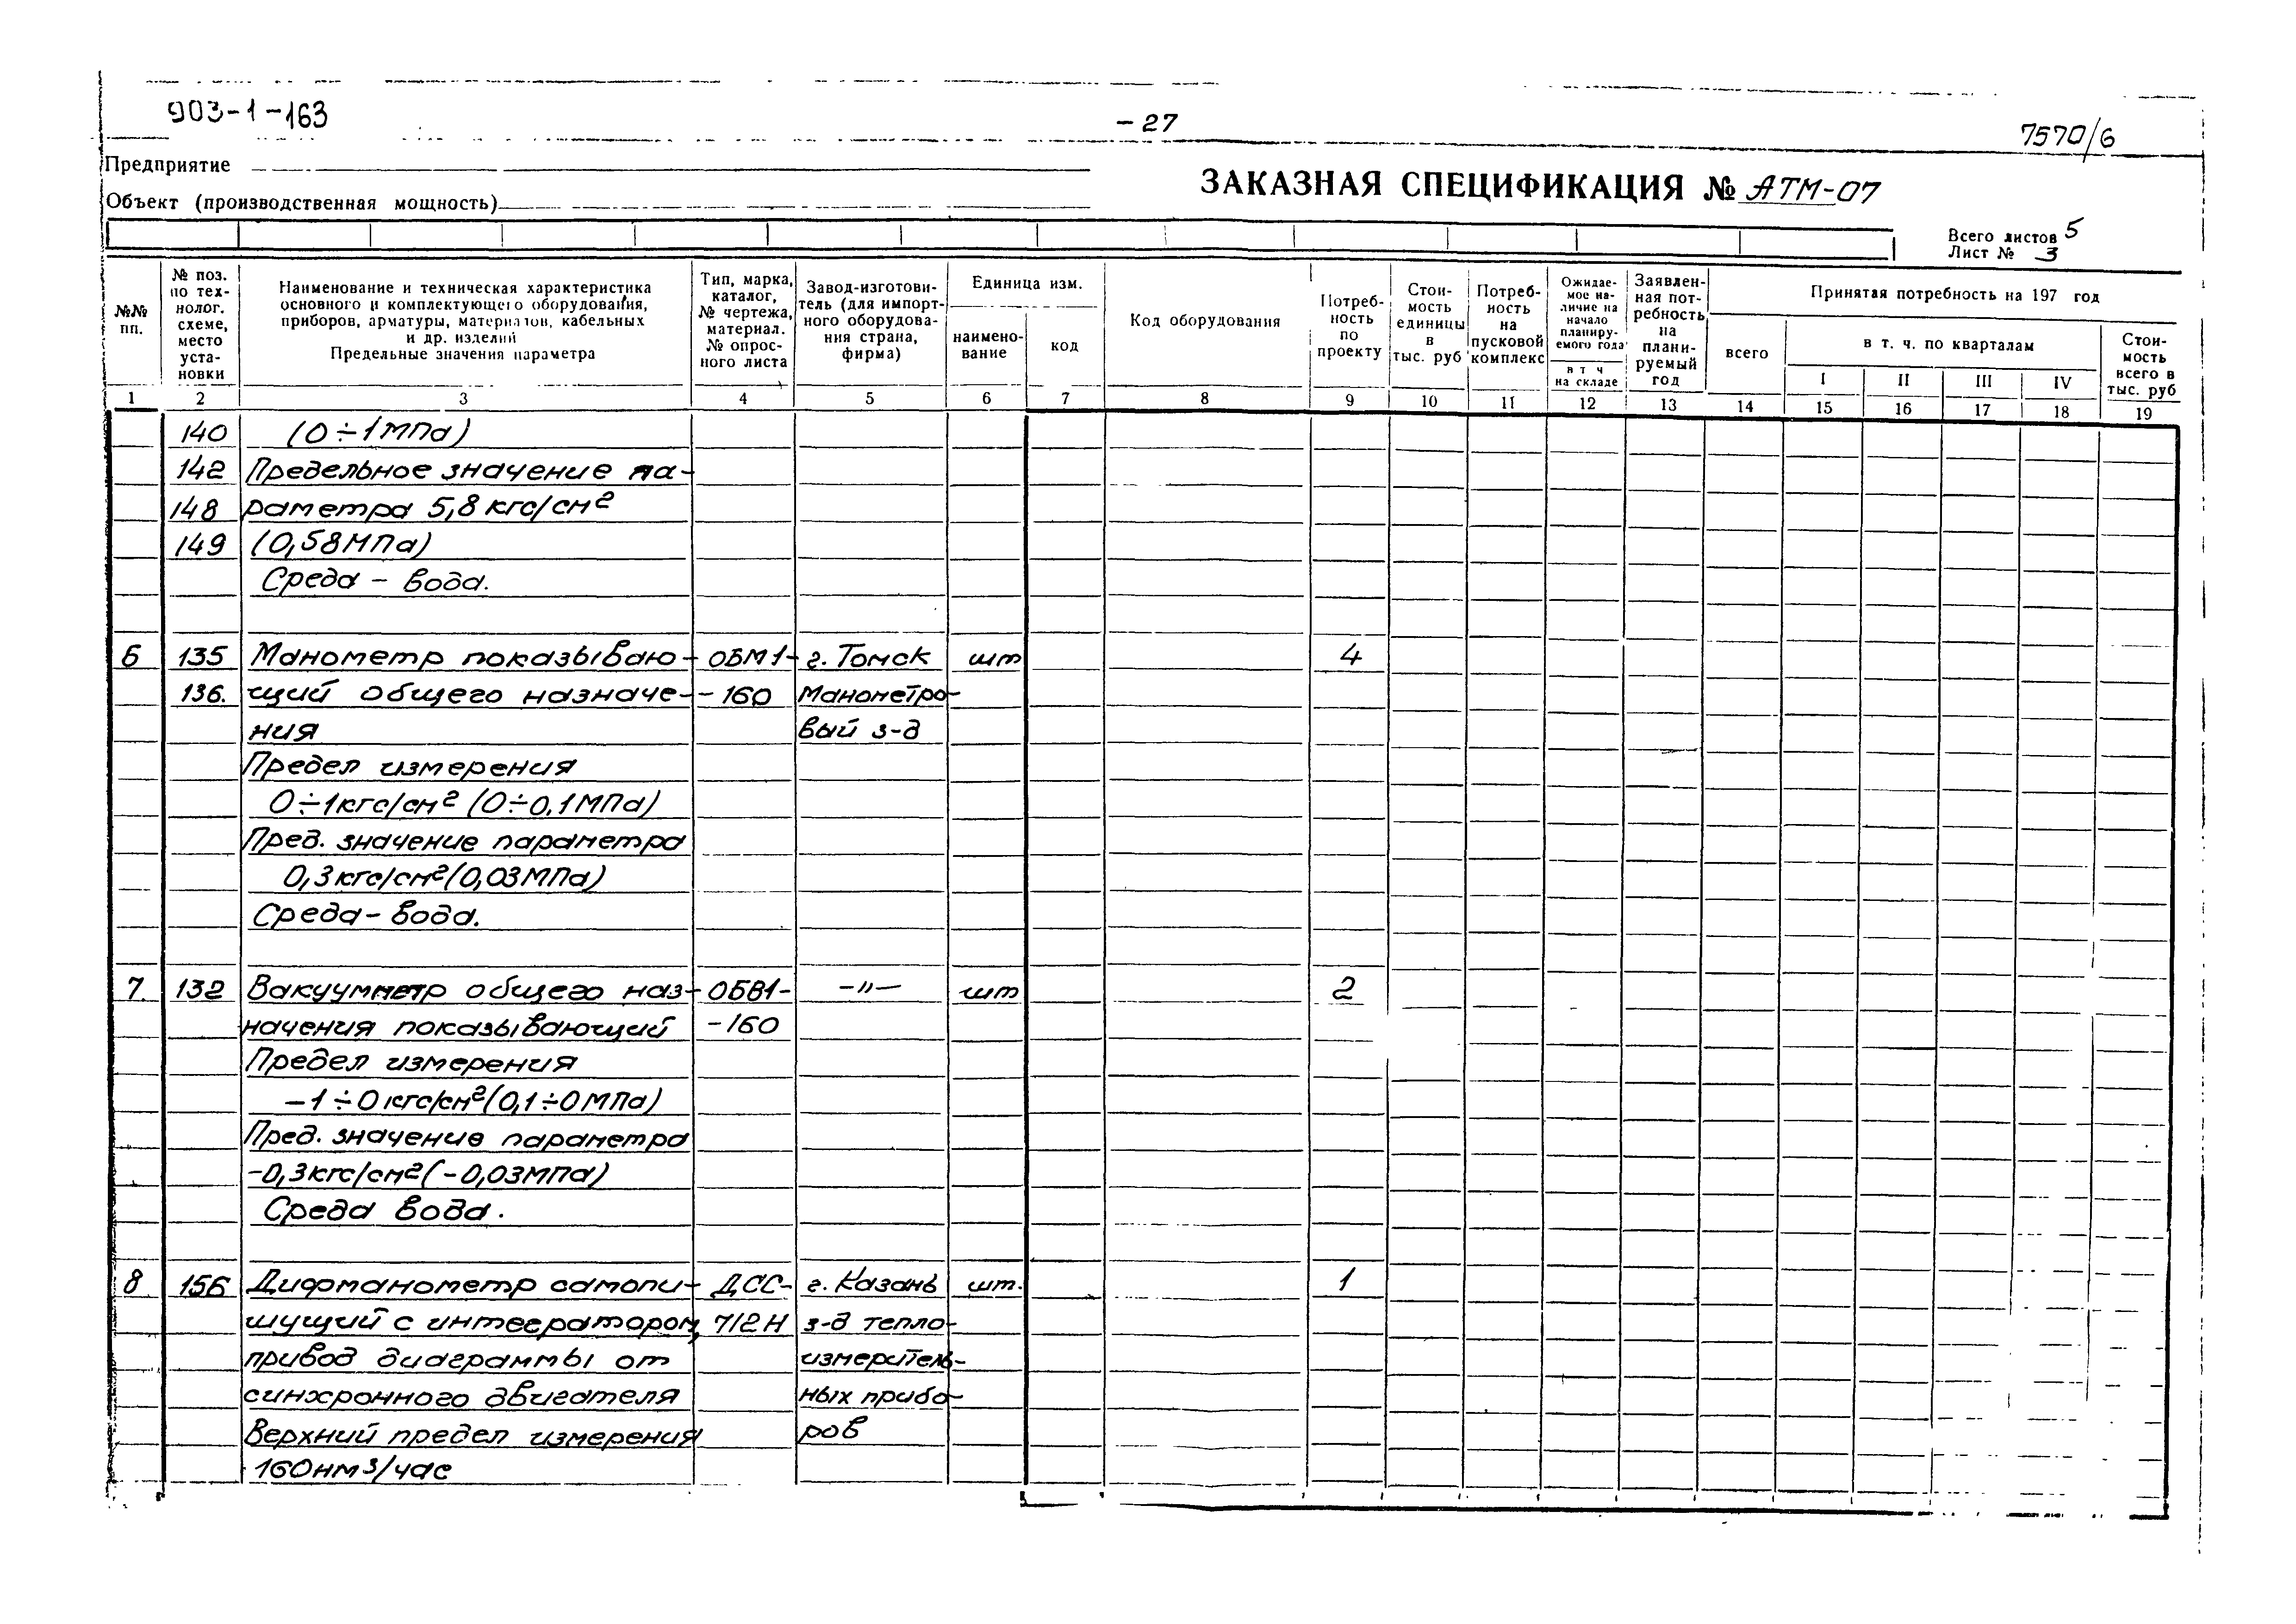 903-1-163
-27
7570/6
Предприятие
ЗАКАЗНАЯ СПЕЦИФИКАЦИЯ № АТМ-07
Объект (производственная мощность)
Всего листов 5
Лист № 3
№№ пп.
№ поз. по технолог. схеме, место установки
Наименование и техническая характеристика
основного и комплектующего оборудования,
приборов, арматуры, материалов, кабельных
и др. изделий
Предельные значения параметра
Тип, марка, каталог, № чертежа, материал. № опросного листа
Завод-изготовитель (для импортного оборудования страна, фирма)
Единица изм.
наименование
код
Код оборудования
Потребность по проекту
Стоимость единицы в тыс. руб
Потребность на пусковой комплекс
Ожидаемое наличие на начало планируемого года
в т ч на складе
Заявленная потребность на планируемый год
Принятая потребность на 197 год
всего
в т. ч. по кварталам
I II III IV
Стоимость всего в тыс. руб
1 2 3 4 5 6 7 8 9 10 11 12 13 14 15 16 17 18 19
140 (0÷1МПа)
142 Предельное значение па-
148 раметра 5,8 кгс/см²
149 (0,58МПа)
Среда - вода.
6 135 Манометр показываю- ОБМ1- г. Томск шт 4
136. щий общего назначе- -160 Манометро-
ния вый з-д
Предел измерения
0÷1кгс/см² (0÷0,1МПа)
Пред. значение параметра
0,3кгс/см²(0,03МПа)
Среда-вода.
7. 132 Вакуумметр общего наз- ОБВ1- -"- шт 2
начения показывающий -160
Предел измерения
-1÷0кгс/см²(0,1÷0МПа)
Пред. значение параметра
-0,3кгс/см²(-0,03МПа)
Среда вода.
8 156 Дифманометр самопи- ДСС- г. Казань шт. 1
шущий с интегратором, 712Н з-д тепло-
привод диаграммы от измеритель-
синхронного двигателя ных прибо-
Верхний предел измерения ров
160нм³/час